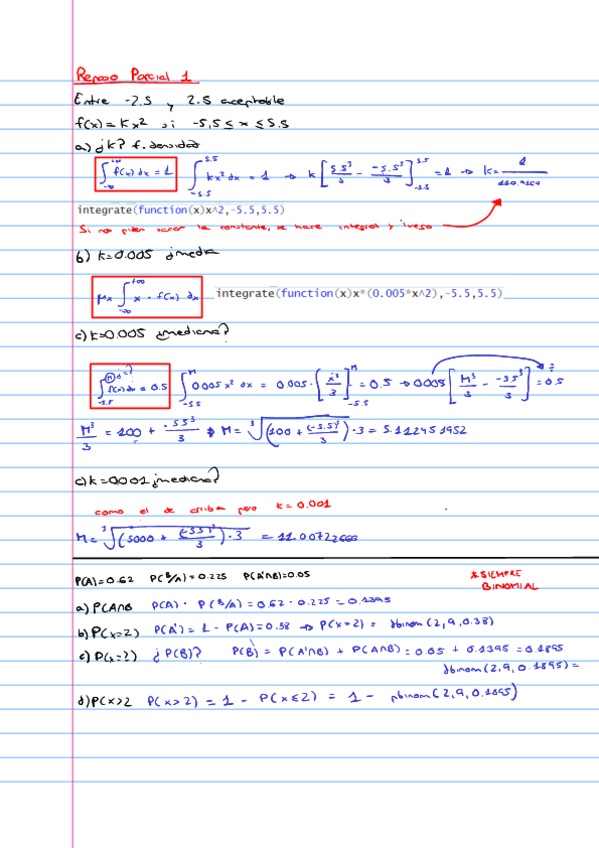 Repaso Parcial 1
Entre -2.5 y 2.5 aceptable
f(x) = kx² si -5,5 ≤ x ≤ 5.5
a) ¿k? f. densidad
∫_{-∞}^{+∞} f(x) dx = 1   ∫_{-5.5}^{5.5} kx² dx = 1 → k [5.5³/3 - -5.5³/3]_{-5.5}^{5.5} = 1 → k = 1/110.9167
integrate(function(x)x^2,-5.5,5.5)
Si nos piden sacar la constante, se hace integral y luego
b) k=0.005 ¿media
μx ∫_{-∞}^{+∞} x · f(x) dx   integrate(function(x)x*(0.005*x^2),-5.5,5.5)
c) k=0.005 ¿mediana?
∫_{-5.5}^{M ¿?} f(x) dx = 0.5   ∫_{-5.5}^{M} 0.005 x² dx = 0.005 · [x³/3]_{-5.5}^{M} = 0.5 → 0.005 [M³/3 - -5.5³/3] = 0.5
M³/3 = 100 + -5.5³/3 → M = ³√(100 + (-5.5)³/3) · 3 = 5.112451952
c) k=0.001 ¿mediana?
como el de arriba pero k = 0.001
M = ³√(5000 + (-5.5)³/3) · 3 = 11.00722666
P(A)=0.62 P(B/A)=0.225 P(A'∩B)=0.05
* SIEMPRE
BINOMIAL
a) P(A∩B P(A) · P(B/A) = 0.62 · 0.225 = 0.1395
b) P(x=2) P(A') = 1 - P(A) = 0.38 → P(x=2) = dbinom(2,9,0.38)
c) P(x=2) ¿P(B)? P(B) = P(A'∩B) + P(A∩B) = 0.05 + 0.1395 = 0.1895
dbinom(2,9,0.1895) =
d) P(x>2 P(x>2) = 1 - P(x≤2) = 1 - pbinom(2,9,0.1895)